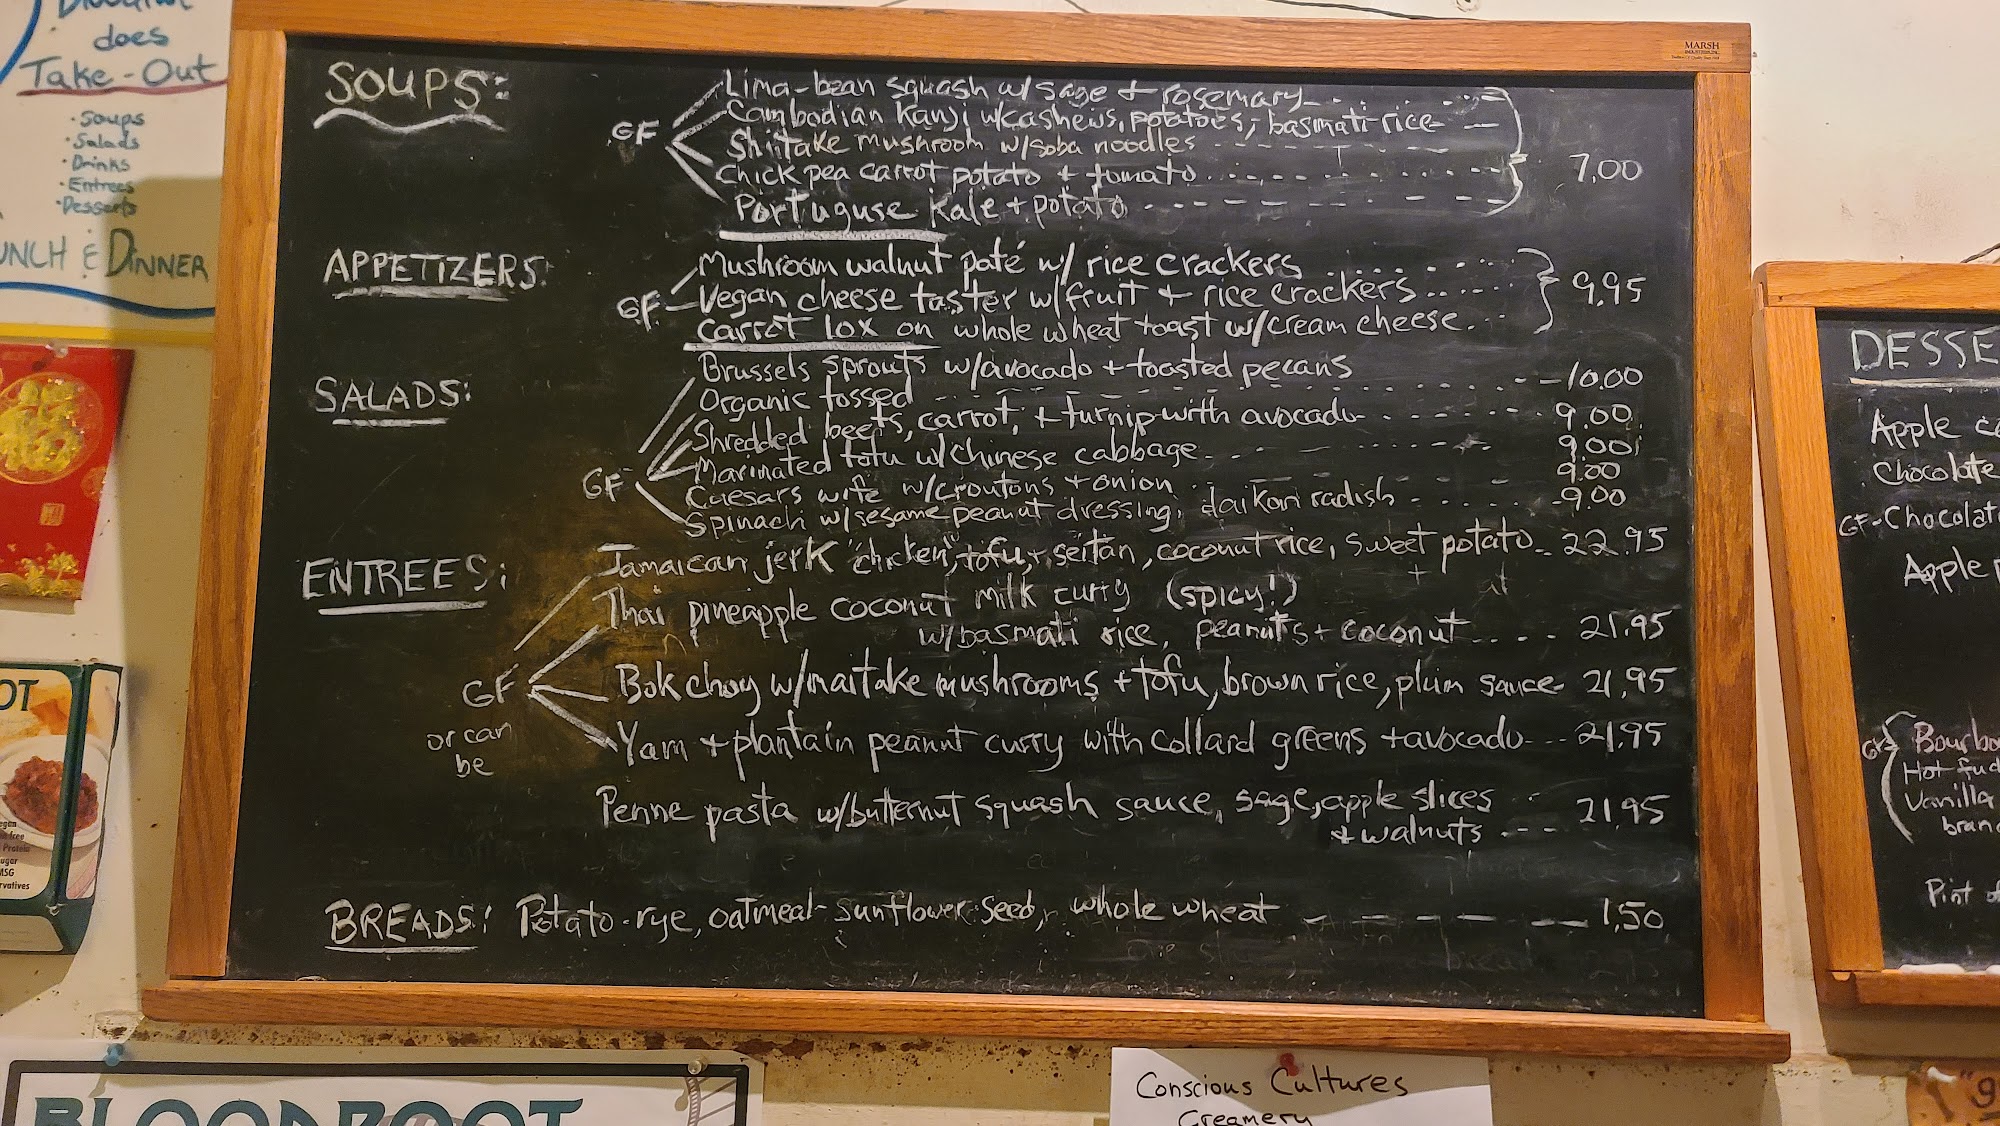 does
Take-Out
·Soups
·Salads
·Drinks
·Entrees
·Desserts
UNCH & DINNER
MARSH
SOUPS:
GF
Lima-bean squash w/ sage + rosemary
Cambodian Kanji w/cashews, potatoes, basmati rice
Shiitake mushroom w/soba noodles
Chick pea carrot potato + tomato
Portuguse Kale + potato
7.00
APPETIZERS:
GF
Mushroom walnut paté w/ rice crackers
Vegan cheese taster w/fruit + rice crackers
Carrot lox on whole wheat toast w/cream cheese
9.95
SALADS:
GF
Brussels sprouts w/avocado + toasted pecans
Organic tossed 10.00
Shredded beets, carrot, + turnip with avocado 9.00
Marinated tofu w/Chinese cabbage 9.00
Caesars wife w/croutons + onion 9.00
Spinach w/sesame peanut dressing, daikon radish 9.00
ENTREES:
GF
or can
be
Jamaican jerk "chicken", tofu, + seitan, coconut rice, sweet potato 22.95
Thai pineapple coconut milk curry (spicy!)
w/basmati rice, peanuts + coconut 21.95
Bok choy w/maitake mushrooms + tofu, brown rice, plum sauce 21.95
Yam + plantain peanut curry with collard greens + avocado 21.95
Penne pasta w/butternut squash sauce, sage, apple slices
+ walnuts 21.95
BREADS: Potato-rye, oatmeal-sunflower seed, whole wheat 1.50
DESSE
Apple
Chocolate
GF-Chocolat
Apple
GF
Bourbo
Hot fud
Vanilla
bran
Pint of
OT
BLOODROOT
Conscious Cultures
Creamery